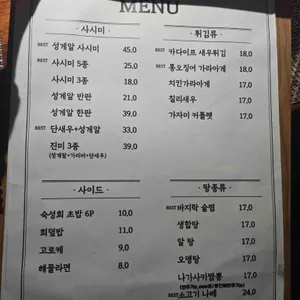 MENU
· 사시미 ·
BEST 성게알 사시미 45,0
BEST 사시미 5종 25,0
사시미 3종 18,0
성게알 반판 21,0
성게알 한판 39,0
BEST 단새우+성게알 33,0
진미 3종 39,0
(성게알+가리비+단새우)
· 튀김류 ·
BEST 카다이프 새우튀김 18,0
BEST 통오징어 가라아게 18,0
치킨가라아게 17,0
칠리새우 17,0
가자미 커틀렛 17,0
· 사이드 ·
숙성회 초밥 6P 10,0
회덮밥 11,0
고로케 9,0
해물라면 8,0
· 탕종류 ·
BEST 바지락 술찜 17,0
생합탕 17,0
알 탕 17,0
오뎅탕 17,0
나가사키짬뽕 17,0
BEST 소고기 나베 24,0